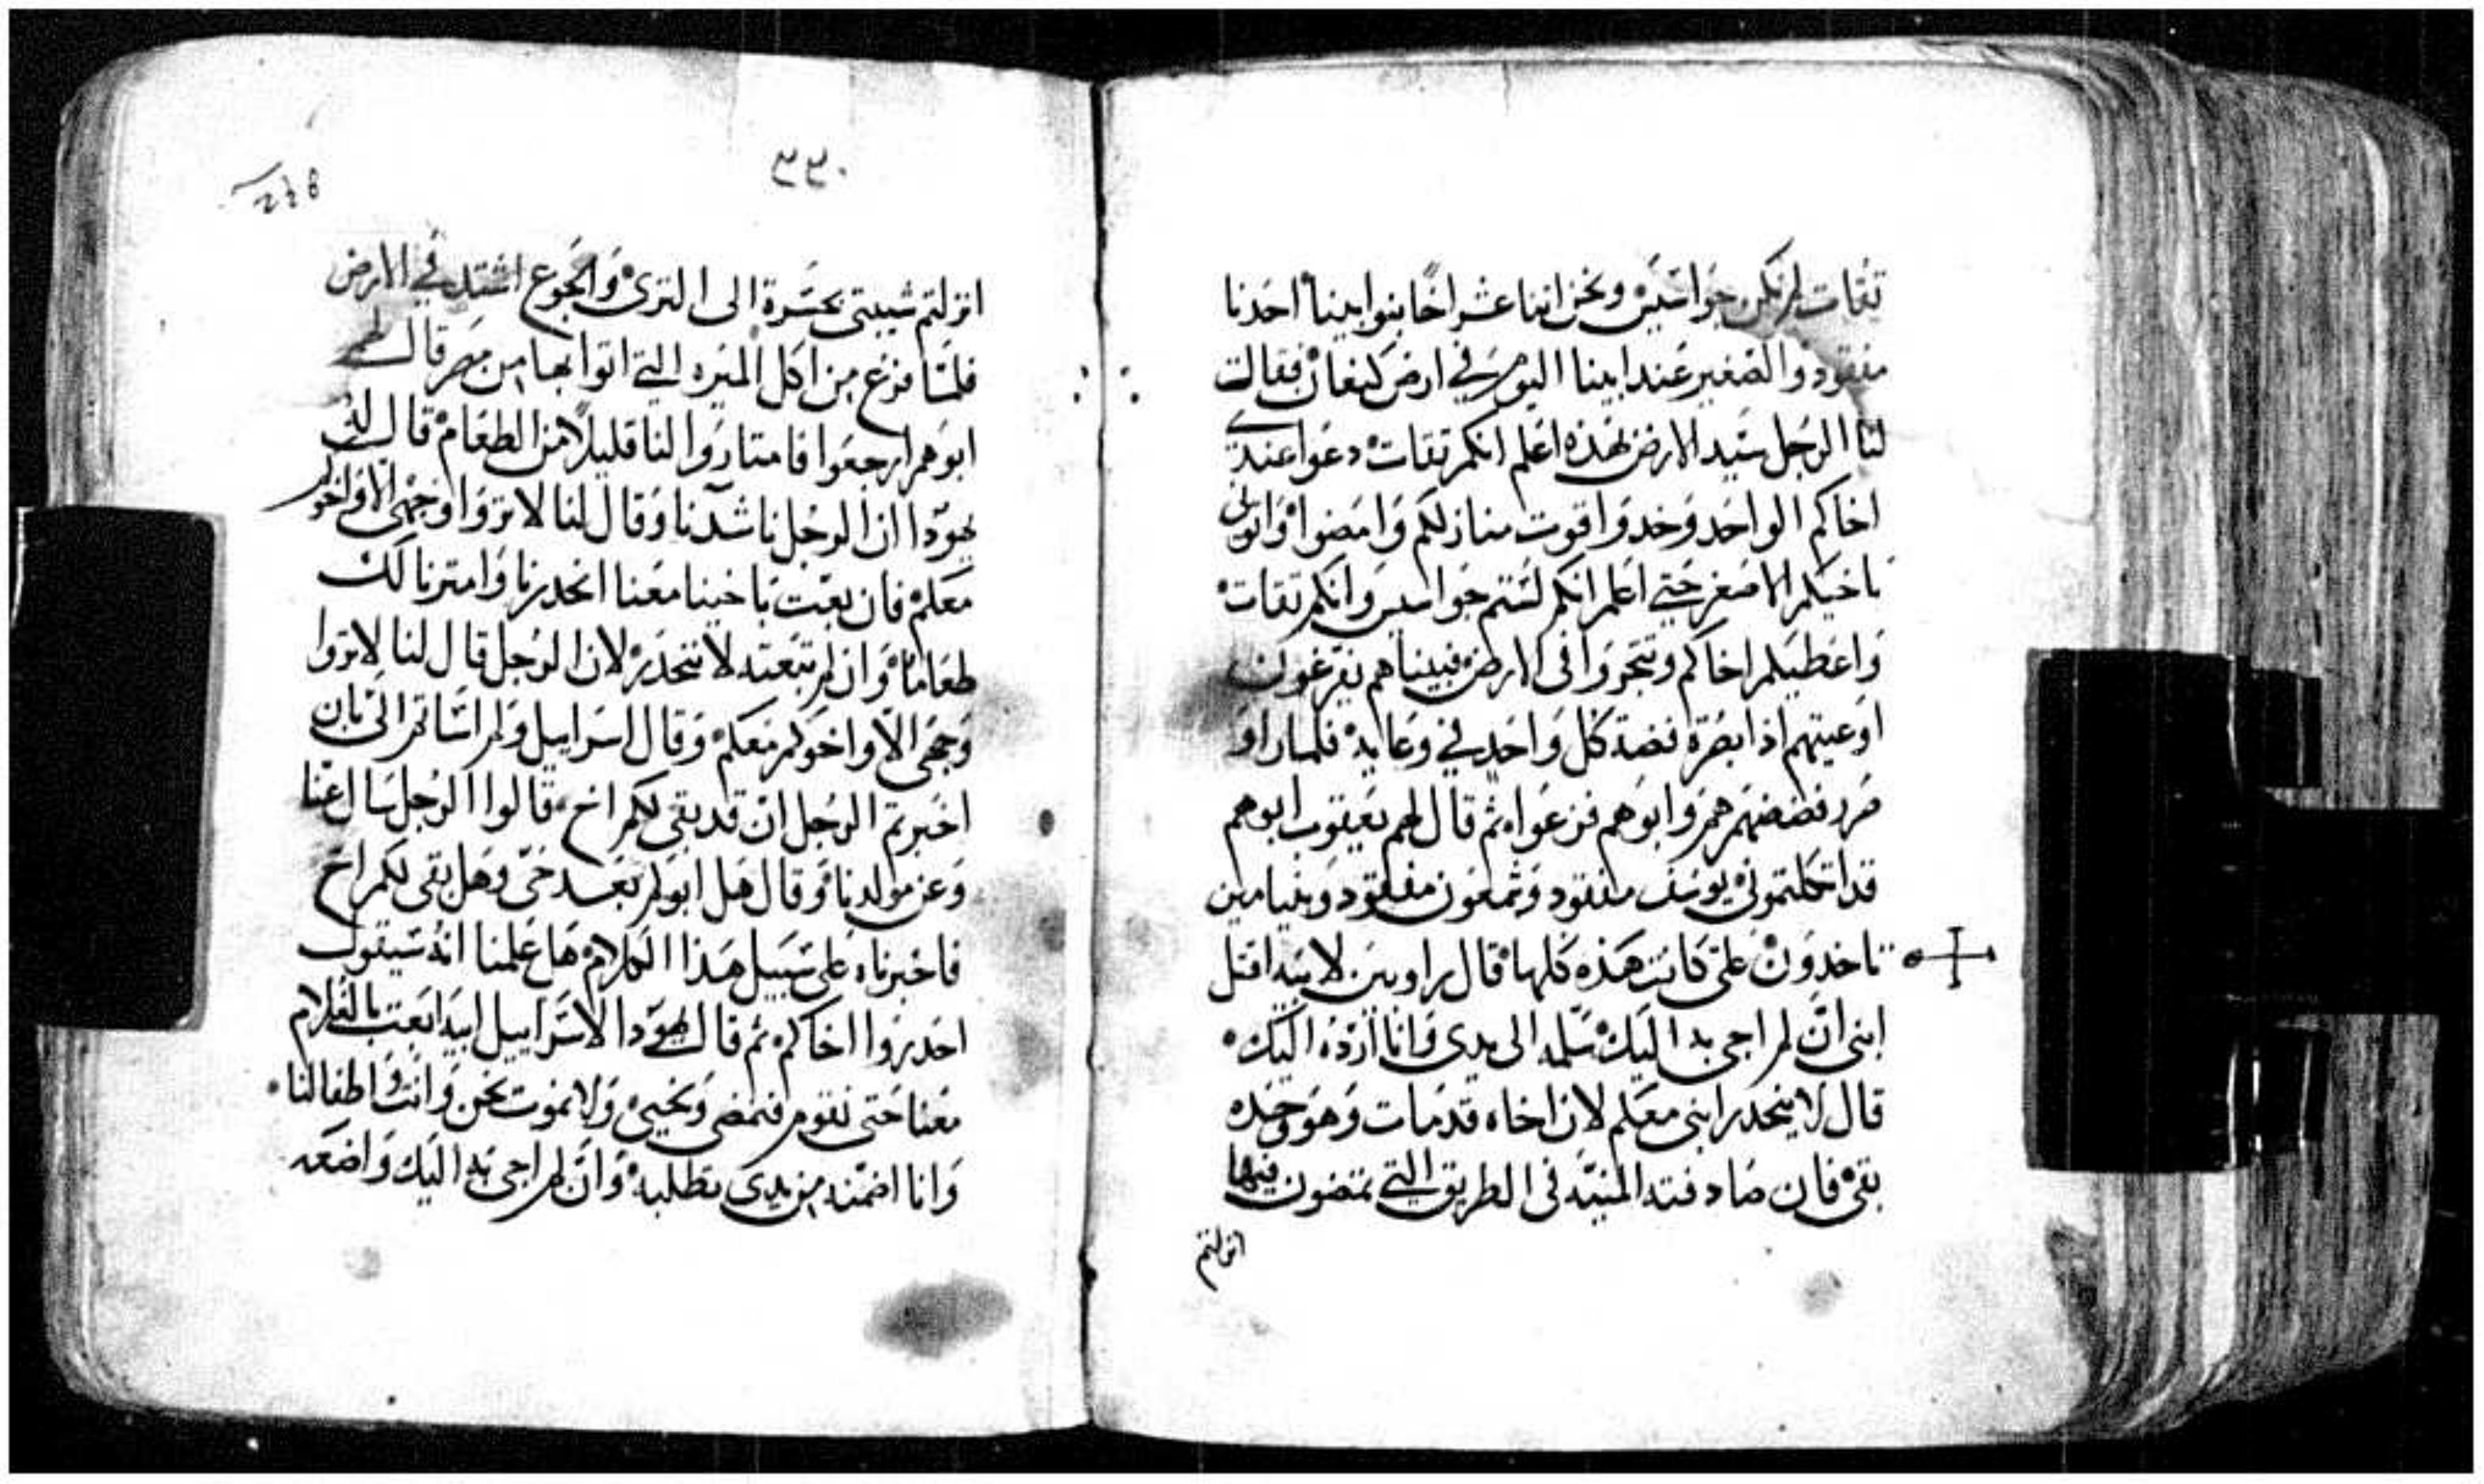 تقات لم نكن جواسيس ونحن اثنا عشر اخا بنوا ابينا احدنا
مفقود والصغير عند ابينا اليوم في ارض كنعان فقال
لنا الرجل سيد الارض بهذه اعلم انكم تقات دعوا عندي
اخاكم الواحد وخدوا قوت منازلكم وامضوا واتوني
باخيكم الاصغر حتي اعلم انكم لستم جواسيس وانكم تقات
واعطيكم اخاكم وتتجروا في الارض فبيناهم يفرغون
اوعيتهم اذا بصرة فضة كل واحد في وعايه فلما راو
صرر فضضهم هم وابوهم فزعوا ثم قال لهم يعقوب ابوهم
قد اتكلتموني يوسف مفقود وشمعون مفقود وبنيامين
تاخدون علي كانت هذه كلها قال راوبين لابيه اقتل
ابني ان لم اجي به اليك سلمه الى يدي وانا ارده اليك
قال لا ينحدر ابني معكم لان اخاه قد مات وهو وحده
بقي فان صادفته المنيه في الطريق التي تمضون فيها
انزلتم
٣٣٠
انزلتم شيبتي بحسرة الى الترى والجوع اشتد في الارض
فلما فرغ من اكل الميره التي اتوا بها من مصر قال لهم
ابوهم ارجعوا فامتاروا لنا قليلا من الطعام قال له
يهودا ان الرجل ناشدنا وقال لنا لا تروا وجهي الا واخوكم
معكم فان بعتت باخينا معنا انحدرنا وامترنا لك
طعاما وان لم تبعته لا ننحدر لان الرجل قال لنا لا تروا
وجهي الا واخوكم معكم وقال اسراييل ولم اساتم الي بان
اخبرتم الرجل ان قد بقي لكم اخ قالوا الرجل سال عنا
وعن مولدنا وقال هل ابوكم بعد حي وهل بقي لكم اخ
فاخبرناه على سبيل هذا الكلام هل علمنا انه سيقول
احدروا اخاكم ثم قال يهودا لاسراييل ابيه ابعت بالغلام
معنا حتى نقوم فنمضي ونحيي ولا نموت نحن وانت واطفالنا
وانا اضمنه من يدي تطلبه وان لم اجي به اليك واضعه